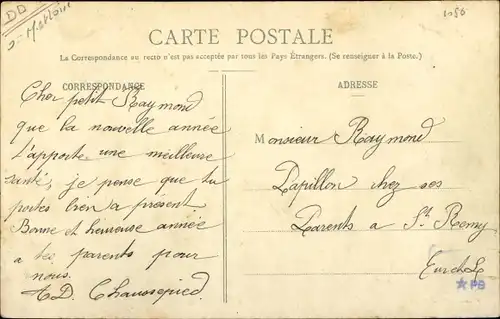 1086
CARTE POSTALE
La Correspondance au recto n'est pas acceptée par tous les Pays Étrangers. (Se renseigner à la Poste.)
CORRESPONDANCE
Cher petit Raymond
que la nouvelle année
t'apporte une meilleure
santé, je pense que tu
portes bien a present
Bonne et heureuse année
a tes parents pour
nous.
D. Chaussepied.
ADRESSE
Monsieur Raymond
Papillon chez ses
Parents a St. Remy
Eur et L
PB